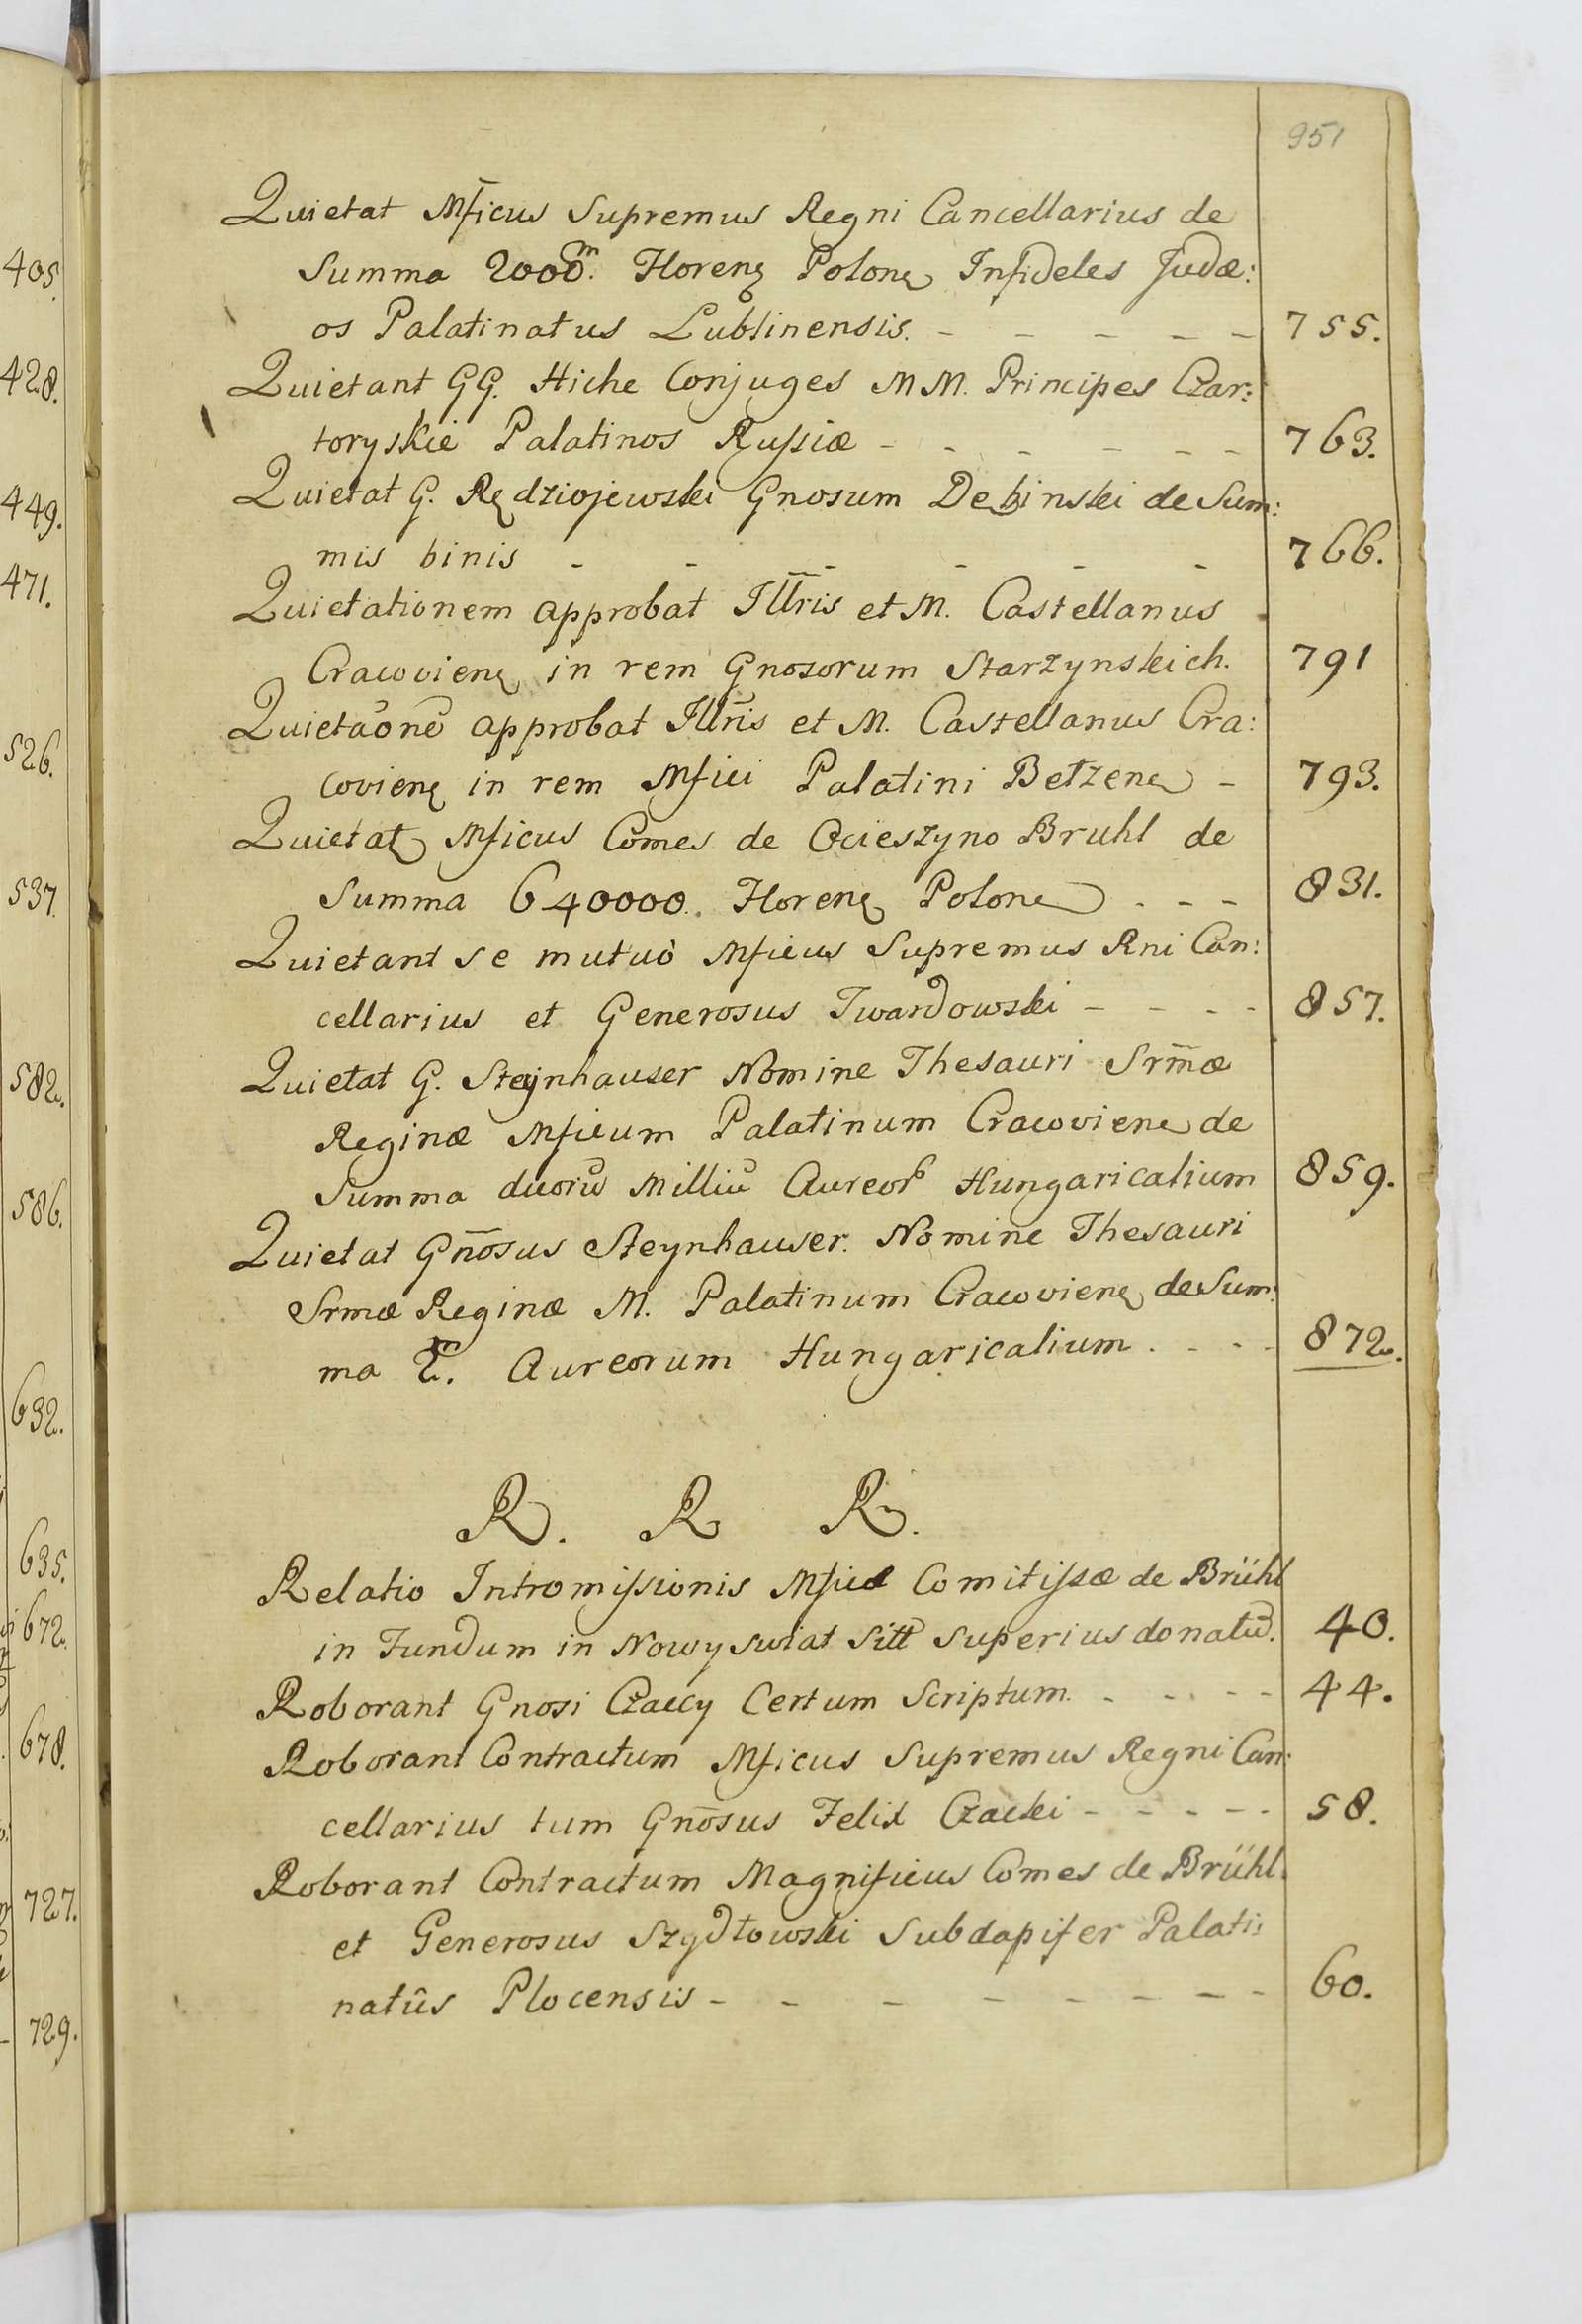 951
Quietat Mficus Supremus Regni Cancellarius de
Summa 2000.m Florenꝫ Polonꝫ Infideles Judæ:
os Palatinatus Lublinensis. - - - - - 755.
Quietant GG. Hiche Conjuges MM. Principes Czar:
toryskie Palatinos Russiæ - - - - - - 763.
Quietat G. Rędziojewski Gnosum Dębinski de Sum:
mis binis - - - - - - 766.
Quietationem approbat Illris et M. Castellanus
Cracovienꝫ in rem Gnosorum Starzynskich. 791
Quietaōnē approbat Illris et M. Castellanus Cra:
covienꝫ in rem Mfici Palatini Betzenꝫ - 793.
Quietatꝫ Mficus Comes de Ocieszyno Bruhl de
Summa 640000. Florenꝫ Polonꝫ - - - 831.
Quietant se mutuò Mficus Supremus Rni Can:
cellarius et Generosus Twardowski - - - - 857.
Quietat G. Steynhauser Nomine Thesauri Srm̄æ
Reginæ Mficum Palatinum Cracovienꝫ de
Summa duorū Milliū Aureor̃ Hungaricalium 859.
Quietat Gn̄osus Steynhauser. Nomine Thesauri
Srmæ Reginæ M. Palatinum Cracovienꝫ de Sum:
ma 2.m Aureorum Hungaricalium. - - - 872.
R. R R.
Relatio Intromissionis Mficæ Comitissæ de Brühl
in Fundum in Nowy swiat Sitt Superius donatū. 40.
Roborant Gnosi Czaccy Certum Scriptum. - - - - - 44.
Roborant Contractum Mficus Supremus Regni Can:
cellarius tum Gn̄osus Felix Czacki - - - - - 58.
Roborant Contractum Magnificus Comes de Brühl.
et Generosus Szydłowski Subdapifer Palati:
natûs Plocensis - - - - - - - - 60.
405.
428.
449.
471.
526.
537.
582.
586.
632.
635.
672.
678.
727.
729.